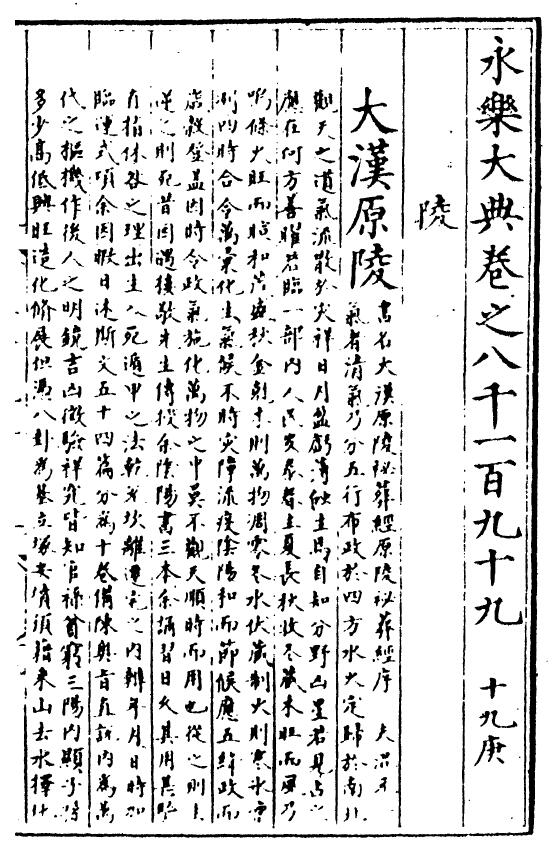 永樂大典卷之八千一百九十九 十九庚
陵
大漢原陵
書名大漢原陵秘葬經原陵秘葬經序 夫混元
氣者清氣乃分五行布政於四方水火定歸於南北
觀天之道氣流散於災祥日月盈虧薄蝕主焉自知分野凶星若見占之
應在何方善曜若臨一部內人民安泰春生夏長秋收冬藏木旺而風乃
鳴條火旺而暄和茂盛秋金則萬物凋零冬水伏藏制火則寒冰雪
測四時合令萬彙化生氣候不時災障流疫陰陽和而節候應五政而
歲穀登蓋因時令政氣施化萬物之中莫不觀天順時而用也從之則生
逆之則死昔因遇樓敬先生傳授余陰陽書三本余講習日久其用甚驗
直指休咎之理出生入死遁甲之法乾艮坎離之內辨年月日時加
臨運式項余因暇日述斯文五十四篇分為十卷備陳奧旨直訴內為萬
代之樞機作後人之明鏡吉凶徵驗祥皆知官祿首窮三陽內顯子孫
多少高低興旺造化修展但憑八卦為基立塚安墳須籍來山去水擇